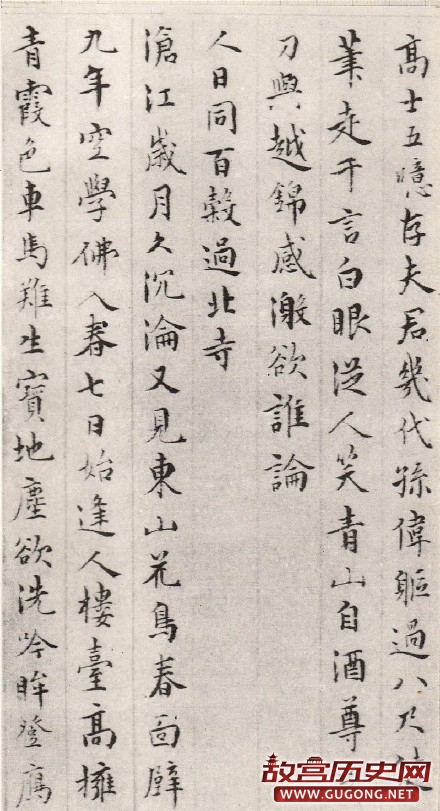 高士五噫存夫君幾代孫偉軀過八尺健
筆走千言白眼従人笑青山自酒尊
刀與越錦感激欲誰論
人日同百榖過北寺
滄江歲月久沉淪又見東山花鳥春面壁
九年空學佛入春七日始逢人樓臺高擁
青霞色車馬難生寶地塵欲洗吟眸登鴈
故宫历史网
www.GUGONG.NET